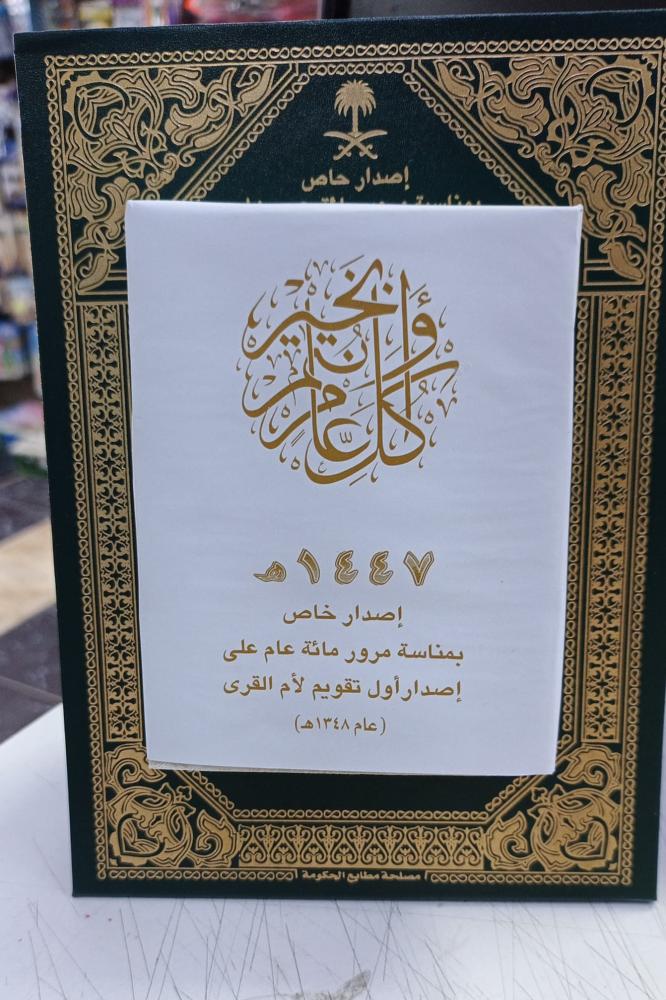 إصدار خاص
بمناسبة
وأنتم بخير
كل عام
١٤٤٧هـ
إصدار خاص
بمناسة مرور مائة عام على
إصدار أول تقويم لأم القرى
(عام ١٣٤٨هـ)
مصلحة مطابع الحكومة